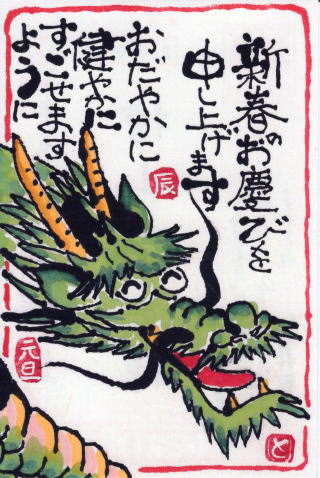 新春のお慶びを
申し上げます
おだやかに
健やかに
すごせます
ように
辰
元旦
と